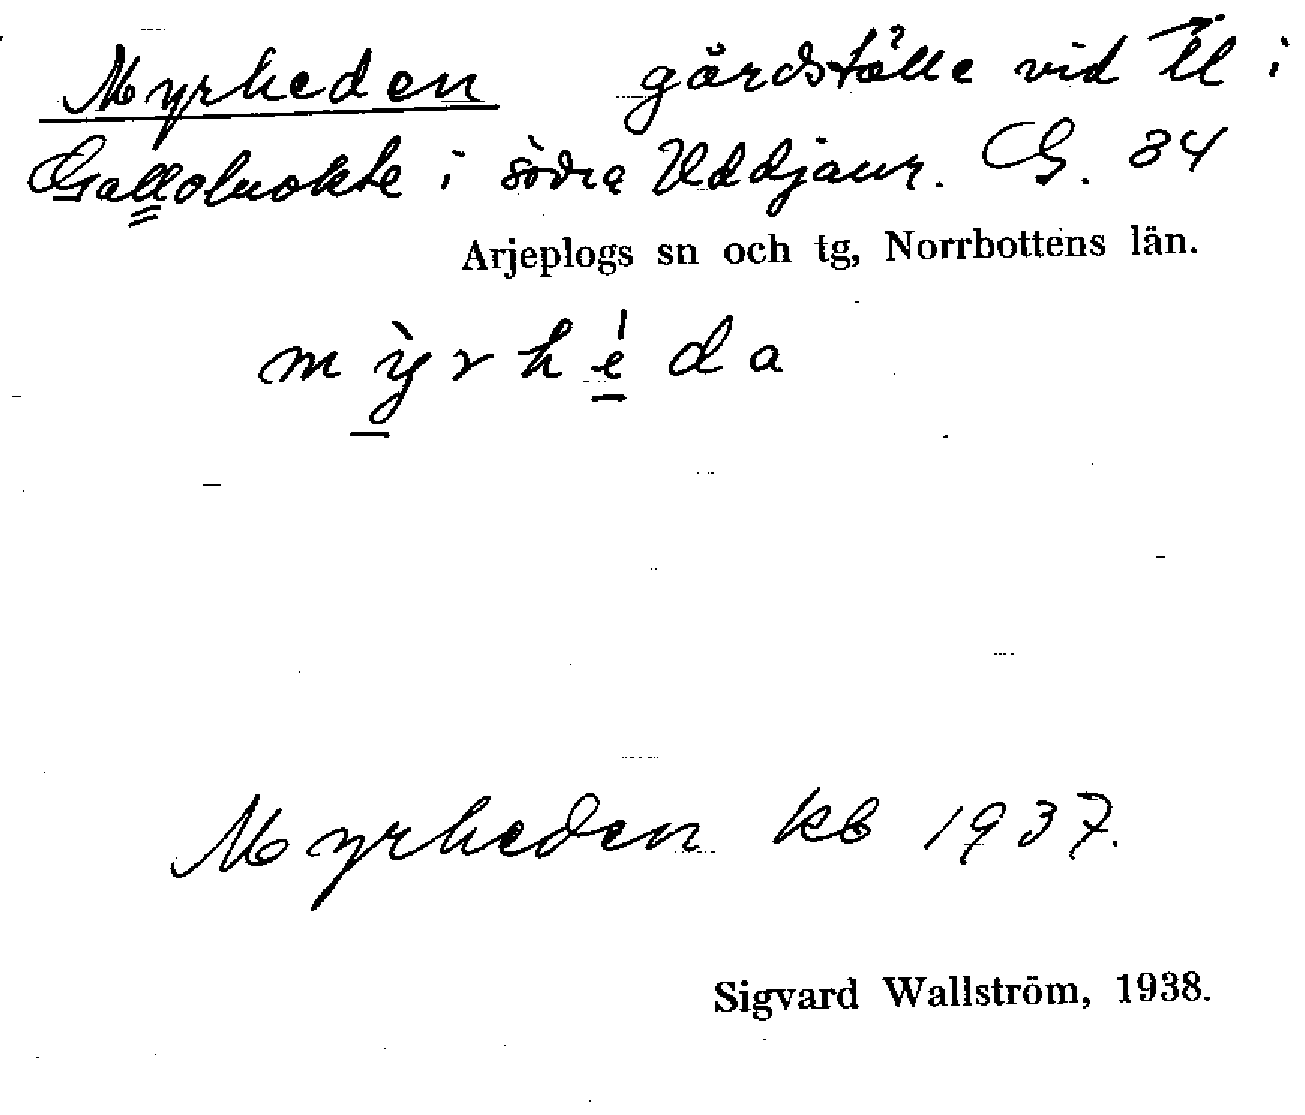 Myrheden gårdställe vid Ll i
Galloluokte i södra Uddjaur. G. 34
Arjeplogs sn och tg, Norrbottens län.
mỳrhéda
Myrheden kb 1937.
Sigvard Wallström, 1938.